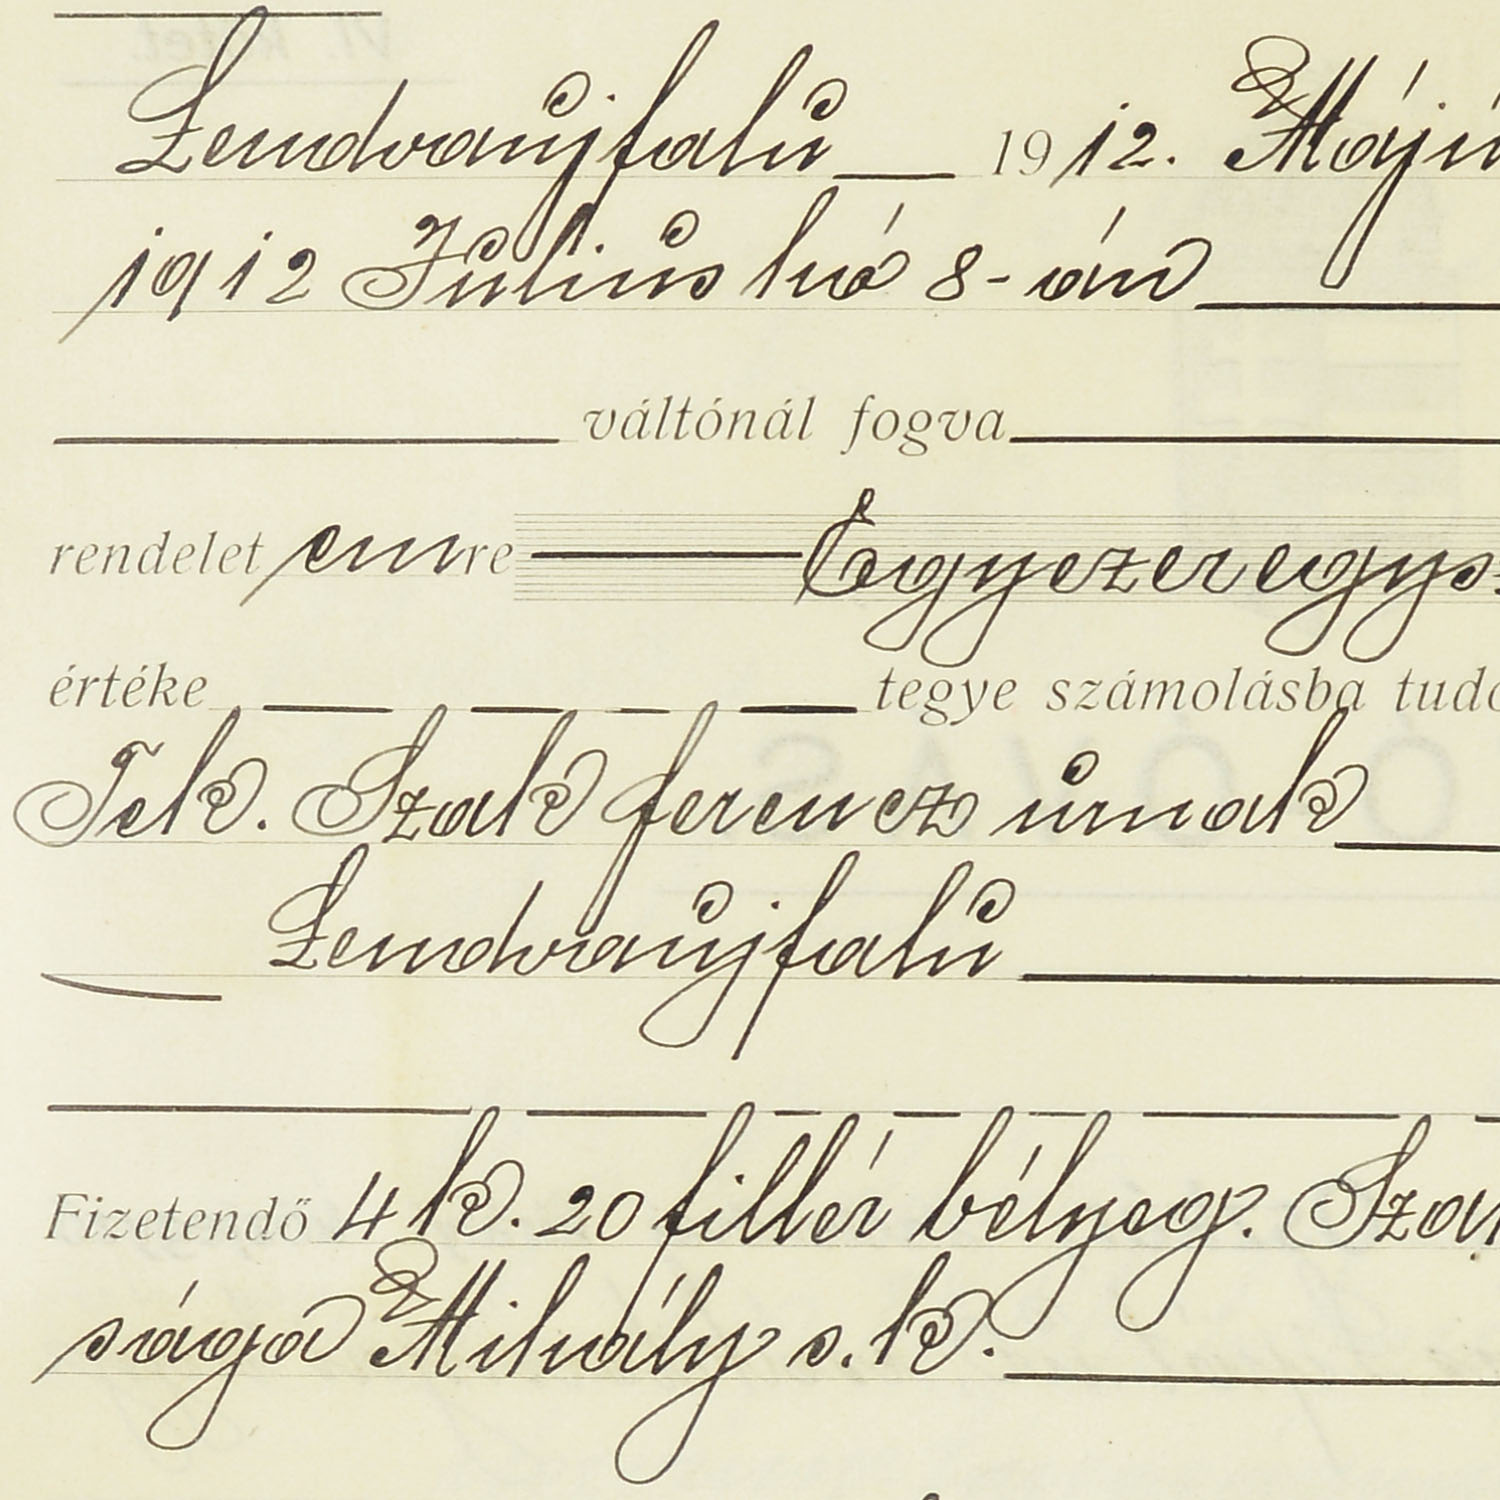 Lendvaújfalu 1912. Máju
1912 Július hó 8-án
váltónál fogva
rendelet emre Egyezeregys
értéke tegye számolásba tudo
Tek. Szak ferencz úrnak
Lendvaújfalu
Fizetendő 4 k. 20 fillér bélyeg. Szar
ságа Mihály s. k.